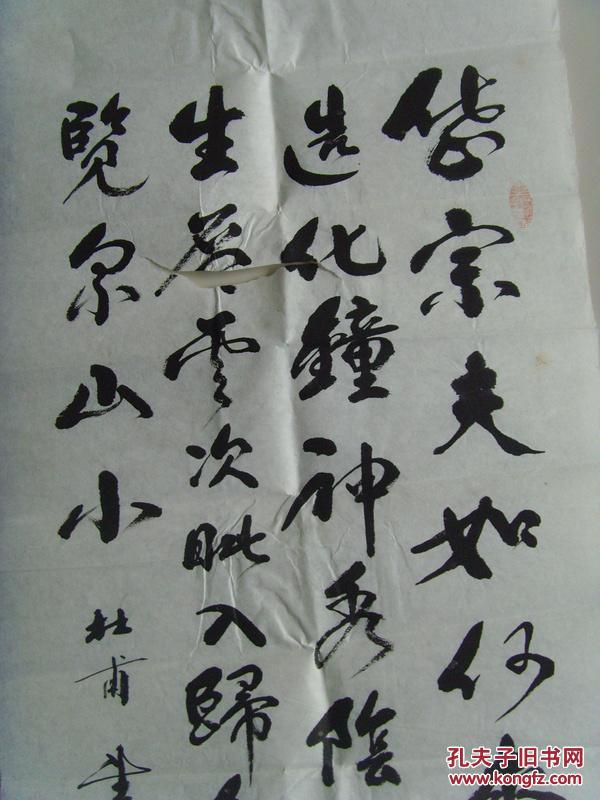 岱宗夫如何
造化鐘神秀陰
生層雲决眦入歸
覽眾山小 杜甫
孔夫子旧书网
www.kongfz.com